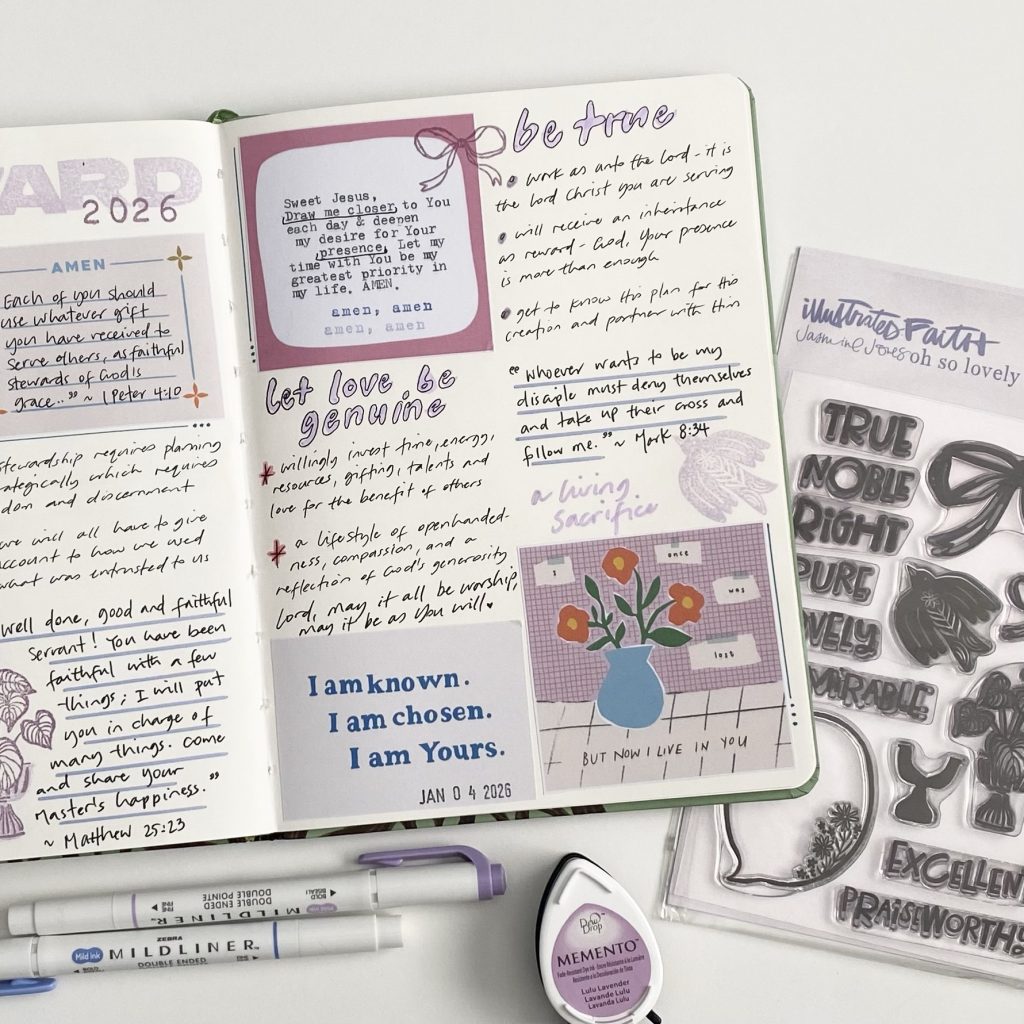 ARD
2026
AMEN
Each of you should
use whatever gift
you have received to
serve others, as faithful
stewards of God's
grace.." ~ 1 Peter 4:10
stewardship requires planning
ategically which requires
dom and discernment
we will all have to give
account to how we used
what was entrusted to us
well done, good and faithful
servant! You have been
faithful with a few
things; I will put
you in charge of
many things. Come
and share your
Master's happiness."
~ Matthew 25:23
Sweet Jesus,
Draw me closer to You
each day & deepen
my desire for Your
presence. Let my
time with You be my
greatest priority in
my life. AMEN.
amen, amen
amen, amen
let love be
genuine
willingly invest time, energy,
resources, gifting, talents and
love for the benefit of others
a lifestyle of openhanded-
ness, compassion, and a
reflection of God's generosity
Lord, may it all be worship,
may it be as You will
I am known.
I am chosen.
I am Yours.
JAN 04 2026
be true
work as unto the Lord - it is
the Lord Christ you are serving
will receive an inheritance
as reward - God, Your presence
is more than enough
get to know His plan for His
creation and partner with Him
"whoever wants to be my
disciple must deny themselves
and take up their cross and
follow me." ~ Mark 8:34
a living
sacrifice
I
once
was
lost
BUT NOW I LIVE IN YOU
illustrated Faith
Jasmine Jones oh so lovely
TRUE
NOBLE
RIGHT
PURE
OVELY
MIRABLE
EXCELLEN
PRAISEWORTHY
BOLD
BISEAU
MILDLINER
DOUBLE ENDED
DOUBLE POINTE
FINE
ZEBRA
Mild ink
MILDLINER
BOLD
DOUBLE ENDED
FINE
Dew Drop
MEMENTO
Fade-Resistant Dye Ink - Encre Résistante à la Lumière
Resistente a la Decoloración de Tinta
Lulu Lavender
Lavande Lulu
Lavanda Lulu